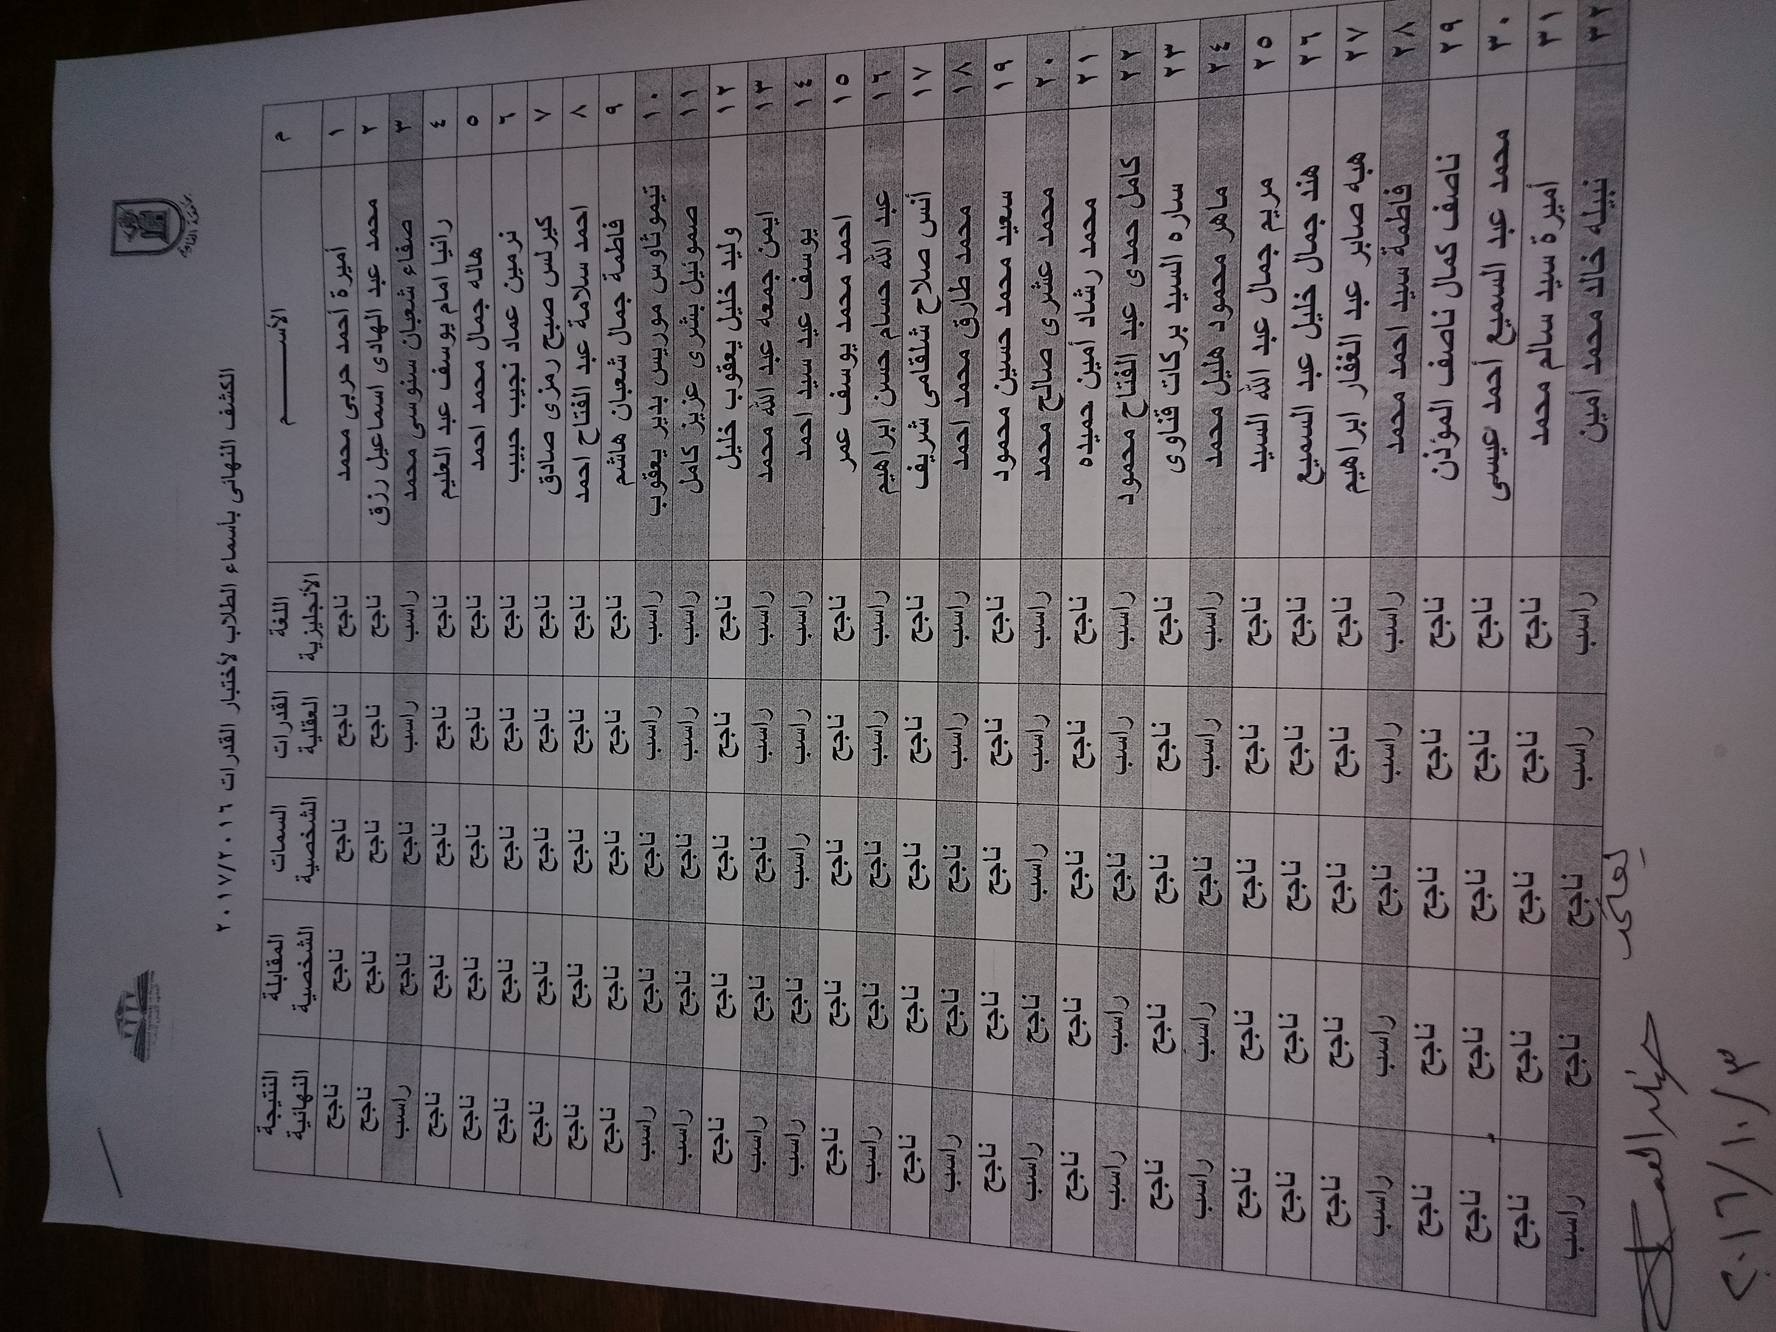 جامعة القاهرة
الكشف النهائى بأسماء الطلاب لأختبار القدرات ٢٠١٧/٢٠١٦
م الأســـــــــم اللغة الأنجليزية القدرات العقلية السمات الشخصية المقابلة الشخصية النتيجة النهائية
١ أميرة أحمد حربى محمد ناجح ناجح ناجح ناجح ناجح
٢ محمد عبد الهادى اسماعيل رزق ناجح ناجح ناجح ناجح ناجح
٣ صفاء شعبان سنوسى محمد راسب راسب ناجح ناجح راسب
٤ رانيا امام يوسف عبد العليم ناجح ناجح ناجح ناجح ناجح
٥ هاله جمال محمد احمد ناجح ناجح ناجح ناجح ناجح
٦ نرمين عماد نجيب حبيب ناجح ناجح ناجح ناجح ناجح
٧ كيرلس صبح رمزى صادق ناجح ناجح ناجح ناجح ناجح
٨ احمد سلامة عبد الفتاح احمد ناجح ناجح ناجح ناجح ناجح
٩ فاطمة جمال شعبان هاشم ناجح ناجح ناجح ناجح ناجح
١٠ تيموثاوس موريس بدير يعقوب راسب راسب ناجح ناجح راسب
١١ صموئيل بشرى عزيز كامل راسب راسب ناجح ناجح راسب
١٢ وليد خليل يعقوب خليل ناجح ناجح ناجح ناجح ناجح
١٣ ايمن جمعه عبد الله محمد راسب راسب ناجح ناجح راسب
١٤ يوسف عيد سيد احمد راسب راسب راسب ناجح راسب
١٥ احمد محمد يوسف عمر ناجح ناجح ناجح ناجح ناجح
١٦ عبد الله حسام حسن ابراهيم راسب راسب ناجح ناجح راسب
١٧ أنس صلاح شلقامى شريف ناجح ناجح ناجح ناجح ناجح
١٨ محمد طارق محمد احمد راسب راسب ناجح ناجح راسب
١٩ سعيد محمد حسين محمود ناجح ناجح ناجح ناجح ناجح
٢٠ محمد عشرى صالح محمد راسب راسب راسب ناجح راسب
٢١ محمد رشاد أمين حميده ناجح ناجح ناجح ناجح ناجح
٢٢ كامل حمدى عبد الفتاح محمود راسب راسب ناجح راسب راسب
٢٣ ساره السيد بركات قناوى ناجح ناجح ناجح ناجح ناجح
٢٤ ماهر محمود هليل محمد راسب راسب ناجح راسب راسب
٢٥ مريم جمال عبد الله السيد ناجح ناجح ناجح ناجح ناجح
٢٦ هند جمال خليل عبد السميع ناجح ناجح ناجح ناجح ناجح
٢٧ هبه صابر عبد الغفار ابراهيم ناجح ناجح ناجح ناجح ناجح
٢٨ فاطمة سيد احمد محمد راسب راسب ناجح راسب راسب
٢٩ ناصف كمال ناصف المؤذن ناجح ناجح ناجح ناجح ناجح
٣٠ محمد عبد السميع أحمد عيسى ناجح ناجح ناجح ناجح ناجح
٣١ أميرة سيد سالم محمد ناجح ناجح ناجح ناجح ناجح
٣٢ نبيله خالد محمد امين راسب راسب ناجح ناجح راسب
يعتمد
٢٠١٦/١٠/٣